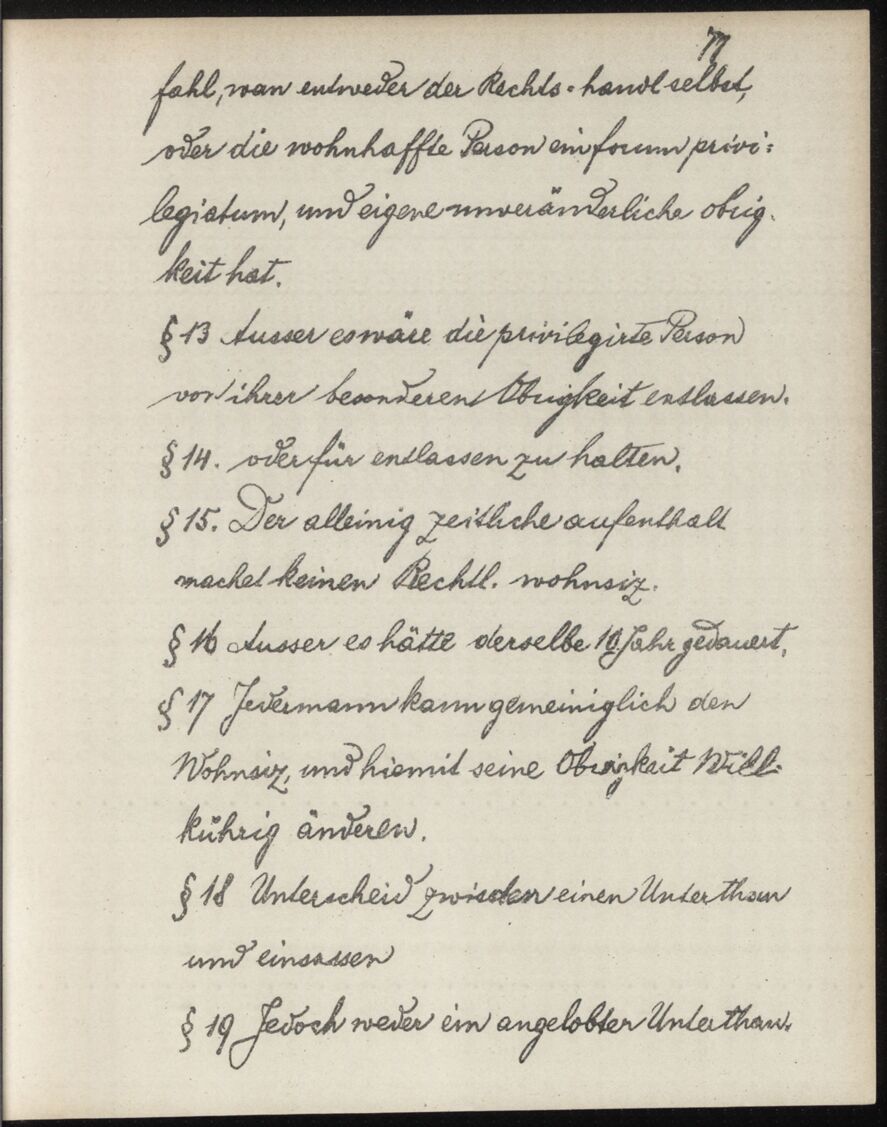 77
fahl, wan entweder der Rechts=handl selbst,
oder die wohnhaffte Person ein forum privi=
legiatum, und eigene unveränderliche obrig.
keit hat.
§ 13 Ausser es wäre die privilegirte Person
von ihrer besonderen Obrigkeit entlassen.
§ 14. oder für entlassen zu halten.
§ 15. Der alleinig zeitliche aufenthalt
machet keinen Rechtl. wohnsiz.
§ 16 Ausser es hätte derselbe 10 Jahr gedauert,
§ 17 Jedermann kann gemeiniglich den
Wohnsiz, und hiemit seine Obrigkeit Will=
kührig änderen.
§ 18 Unterscheid zwischen einen Unterthan
und einsassen
§ 19 Jedoch weder ein angelobter Unterthan.